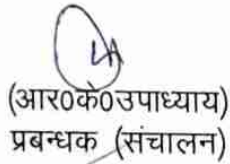 (आर0के0उपाध्याय)
प्रबन्धक (संचालन)